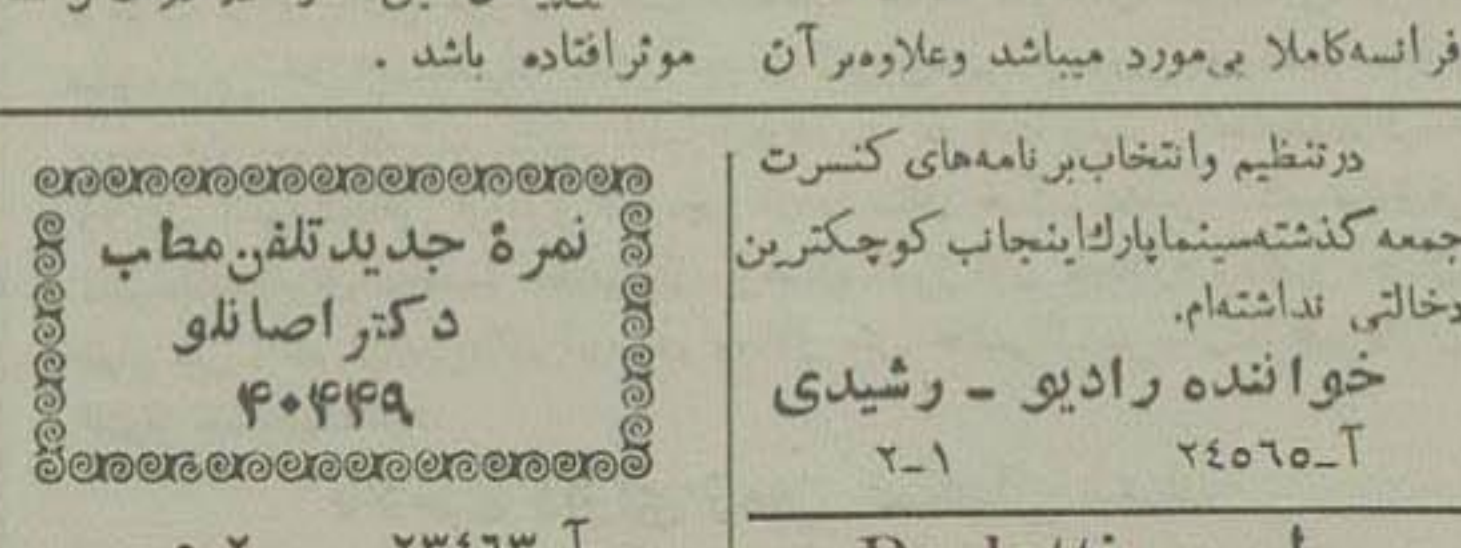 فرانسه‌کاملا بی‌مورد میباشد وعلاوه‌بر آن
موثرافتاده باشد .
درتنظیم وانتخاب‌برنامه‌های کنسرت
جمعه گذشته‌سینماپارك‌اینجانب کوچکترین
دخالتی نداشته‌ام.
خواننده رادیو ـ رشیدی
آ_٢٤٥٦٥ ١_٢
نمرهٔ جدیدتلفن‌مطب
دکتر اصانلو
۴۰۴۴۹
آ_٢٣٤٦٣